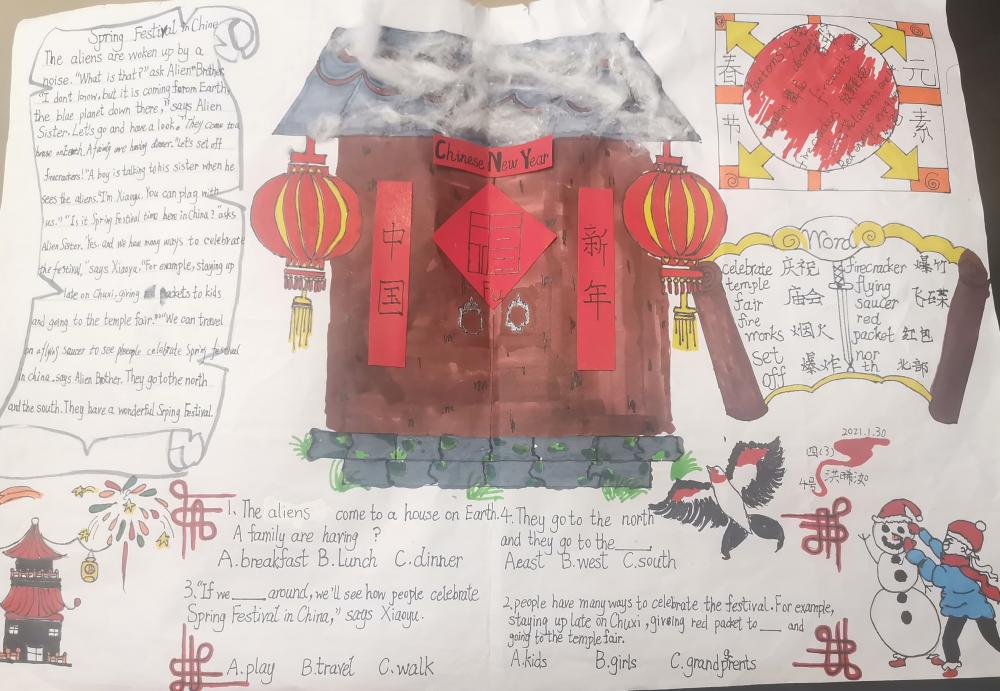 Spring Festival in China
The aliens are woken up by a
noise. "What is that?" ask Alien Brother
"I don't know, but it is coming from Earth,
the blue planet down there," says Alien
Sister. Let's go and have a look." They come to a
house on Earth. A family are having dinner. "Let's set off
firecrackers!" A boy is talking to his sister when he
sees the aliens. "I'm Xiaoyu. You can play with
us." "Is it Spring Festival time here in China?" asks
Alien Sister. "Yes. and we have many ways to celebrate
the festival," says Xiaoyu. "For example, staying up
late on Chuxi, giving packets to kids
and going to the temple fair." "We can travel
on a flying saucer to see people celebrate Spring festival
in China. says Alien Brother. They go to the north
and the south. They have a wonderful Srping Festival.
Chinese New Year
中国
新年
春节
元素
Word
celebrate 庆祝
temple
fair 庙会
fire
works 烟火
set
off 爆炸
firecracker 爆竹
flying
saucer 飞碟
red
packet 红包
nor
th 北部
2021.1.30
四(3)
4号
1. The aliens come to a house on Earth.
A family are having ?
A. breakfast B. Lunch C. dinner
3. "If we____around, we'll see how people celebrate
Spring Festival in China," says Xiaoyu.
A. play B. travel C. walk
4. They go to the north
and they go to the____.
A east B. west C. south
2. people have many ways to celebrate the festival. For example,
staying up late on Chuxi, giving red packet to___ and
going to the temple fair.
A. kids B. girls C. grandprents